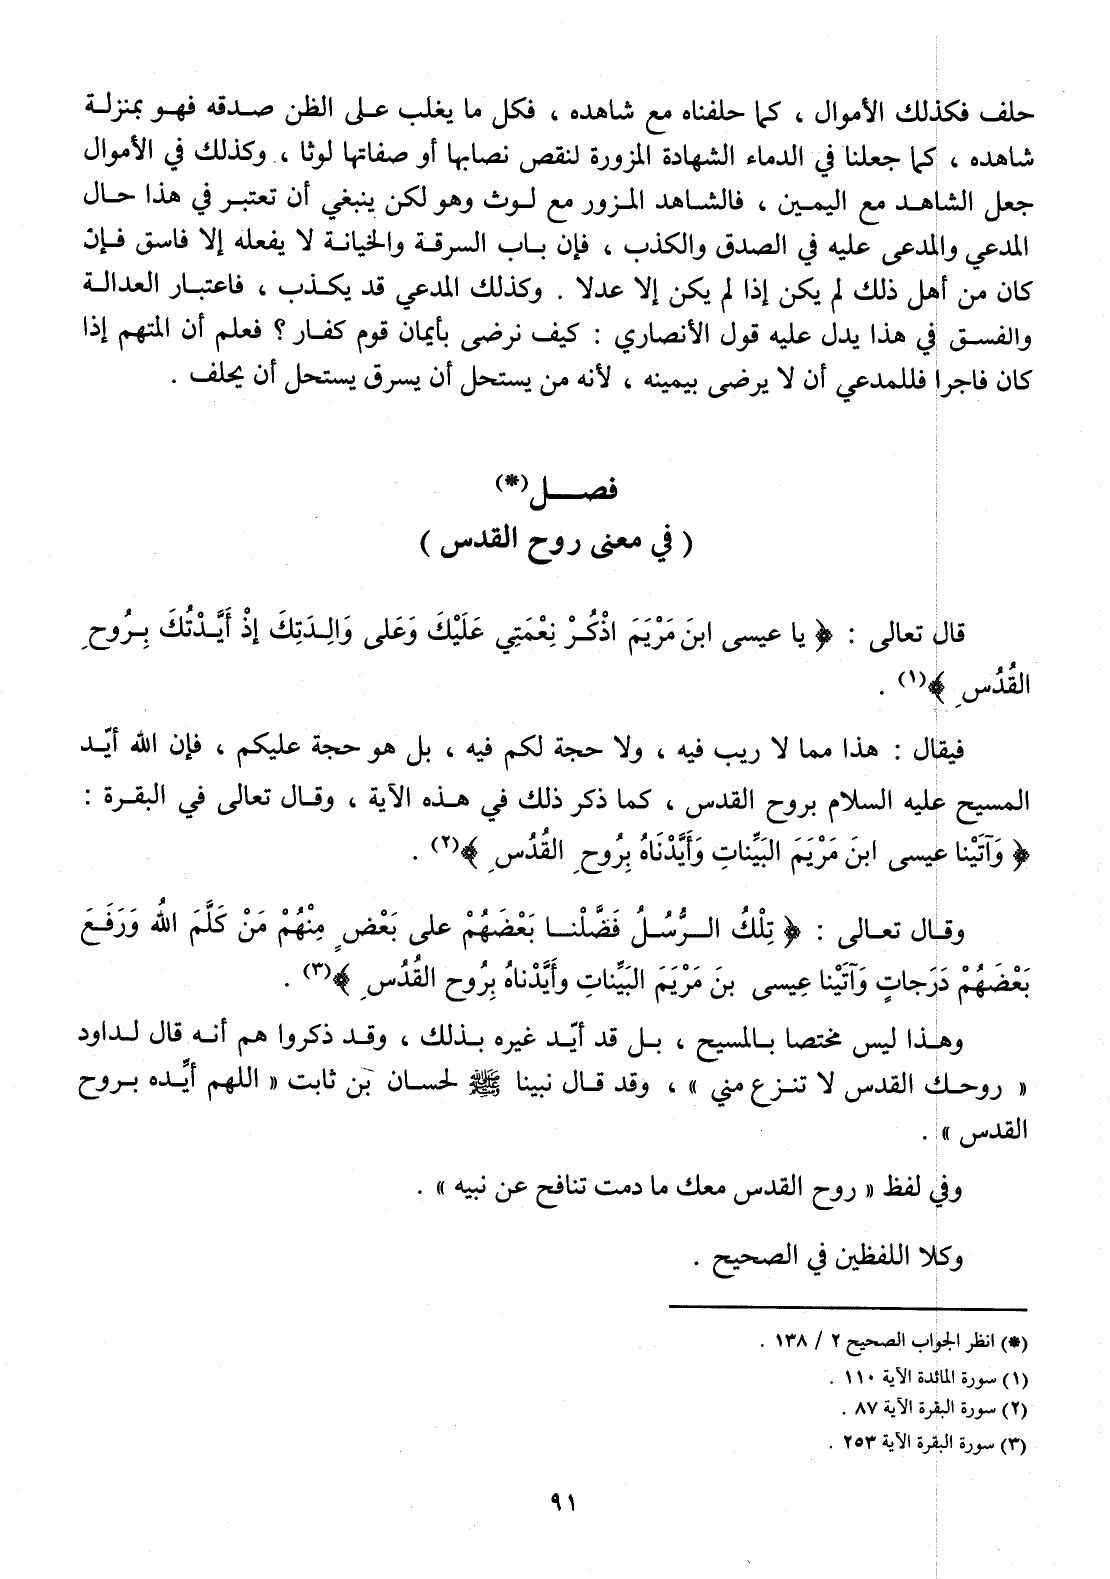 حلف فكذلك الأموال ، كما حلفناه مع شاهده ، فكل ما يغلب على الظن صدقه فهو بمنزلة
شاهده ، كما جعلنا في الدماء الشهادة المزورة لنقص نصابها أو صفاتها لوثا ، وكذلك في الأموال
جعل الشاهد مع اليمين ، فالشاهد المزور مع لوث وهو لكن ينبغي أن تعتبر في هذا حال
المدعي والمدعى عليه في الصدق والكذب ، فإن باب السرقة والخيانة لا يفعله إلا فاسق فإن
كان من أهل ذلك لم يكن إذا لم يكن إلا عدلا . وكذلك المدعي قد يكذب ، فاعتبار العدالة
والفسق في هذا يدل عليه قول الأنصاري : كيف نرضى بأيمان قوم كفار ؟ فعلم أن المتهم إذا
كان فاجرا فللمدعي أن لا يرضى بيمينه ، لأنه من يستحل أن يسرق يستحل أن يحلف .
فصل(*)
( في معنى روح القدس )
قال تعالى : ﴿ يا عيسى ابنَ مَرْيَمَ اذْكُرْ نِعْمَتِي عَلَيْكَ وَعَلى وَالِدَتِكَ إذْ أَيَّدْتُكَ بِرُوحِ
القُدُسِ ﴾(١) .
فيقال : هذا مما لا ريب فيه ، ولا حجة لكم فيه ، بل هو حجة عليكم ، فإن الله أيّد
المسيح عليه السلام بروح القدس ، كما ذكر ذلك في هذه الآية ، وقال تعالى في البقرة :
﴿ وَآتَيْنا عيسى ابنَ مَرْيَمَ البَيِّناتِ وَأَيَّدْنَاهُ بِرُوحِ القُدُسِ ﴾(٢) .
وقال تعالى : ﴿ تِلْكُ الرُّسُلُ فَضَّلْنا بَعْضَهُمْ على بَعْضٍ مِنْهُمْ مَنْ كَلَّمَ اللهُ وَرَفَعَ
بَعْضَهُمْ دَرَجاتٍ وَآتَيْنا عِيسى بنَ مَرْيَمَ البَيِّناتِ وأَيَّدْناهُ بِرُوحِ القُدُسِ ﴾(٣) .
وهذا ليس مختصا بالمسيح ، بل قد أيّد غيره بذلك ، وقد ذكروا هم أنه قال لداود
« روحك القدس لا تنزع مني » ، وقد قال نبينا ﷺ لحسان بن ثابت « اللهم أيِّده بروح
القدس » .
وفي لفظ « روح القدس معك ما دمت تنافح عن نبيه » .
وكلا اللفظين في الصحيح .
(*) انظر الجواب الصحيح ٢ / ١٣٨ .
(١) سورة المائدة الآية ١١٠ .
(٢) سورة البقرة الآية ٨٧ .
(٣) سورة البقرة الآية ٢٥٣ .
٩١